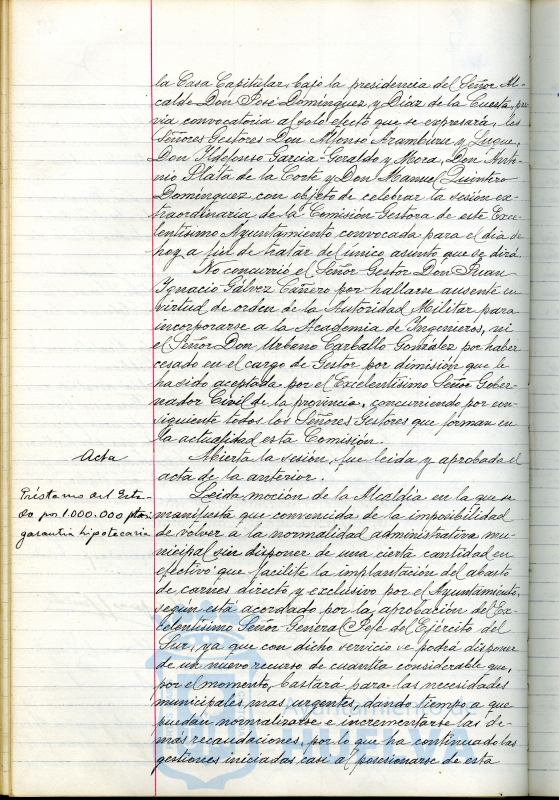 la Casa Capitular, bajo la presidencia del Señor Al-
calde Don José Domínguez y Díaz de la Cuesta, pre-
via convocatoria al solo efecto que se expresará, los
Señores Gestores Don Alfonso Aramburu y Luque,
Don Ildefonso García-Geraldo y Mora, Don Anto-
nio Plata de la Corte y Don Manuel Quintero
Domínguez con objeto de celebrar la sesión ex-
traordinaria de la Comisión Gestora de este Exce-
lentísimo Ayuntamiento convocada para el día de
hoy a fin de tratar del único asunto que se dirá.
No concurrió el Señor Gestor Don Juan
Ignacio Gálvez Cañero por hallarse ausente en
virtud de orden de la Autoridad Militar para
incorporarse a la Academia de Ingenieros, ni
el Señor Don Urbano Carballo González por haber
cesado en el cargo de Gestor por dimisión que le
ha sido aceptada por el Excelentísimo Señor Gober-
nador Civil de la provincia, concurriendo por con-
siguiente todos los Señores Gestores que forman en
la actualidad esta Comisión.
Acta
Abierta la sesión, fue leida y aprobada el
acta de la anterior.
Préstamo del Esta-
do por 1.000.000 ptas.
garantía hipotecaria
Leida moción de la Alcaldía en la que se
manifiesta que convencida de la imposibilidad
de volver a la normalidad administrativa mu-
nicipal sin disponer de una cierta cantidad en
efectivo que facilite la implantación del abasto
de carnes directo y exclusivo por el Ayuntamiento,
según está acordado por la aprobación del Ex-
celentísimo Señor General Jefe del Ejército del
Sur, ya que con dicho servicio se podrá disponer
de un nuevo recurso de cuantía considerable que,
por el momento, bastará para las necesidades
municipales mas urgentes, dando tiempo a que
puedan normalizarse e incrementarse las de-
más recaudaciones, por lo que ha continuado las
gestiones iniciadas casi al posesionarse de esta
Ayuntamiento
HUELVA